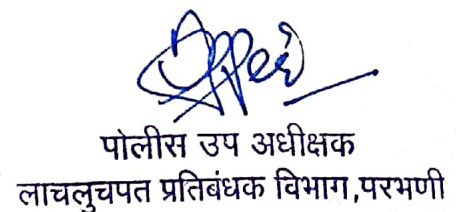 पोलीस उप अधीक्षक
लाचलुचपत प्रतिबंधक विभाग,परभणी